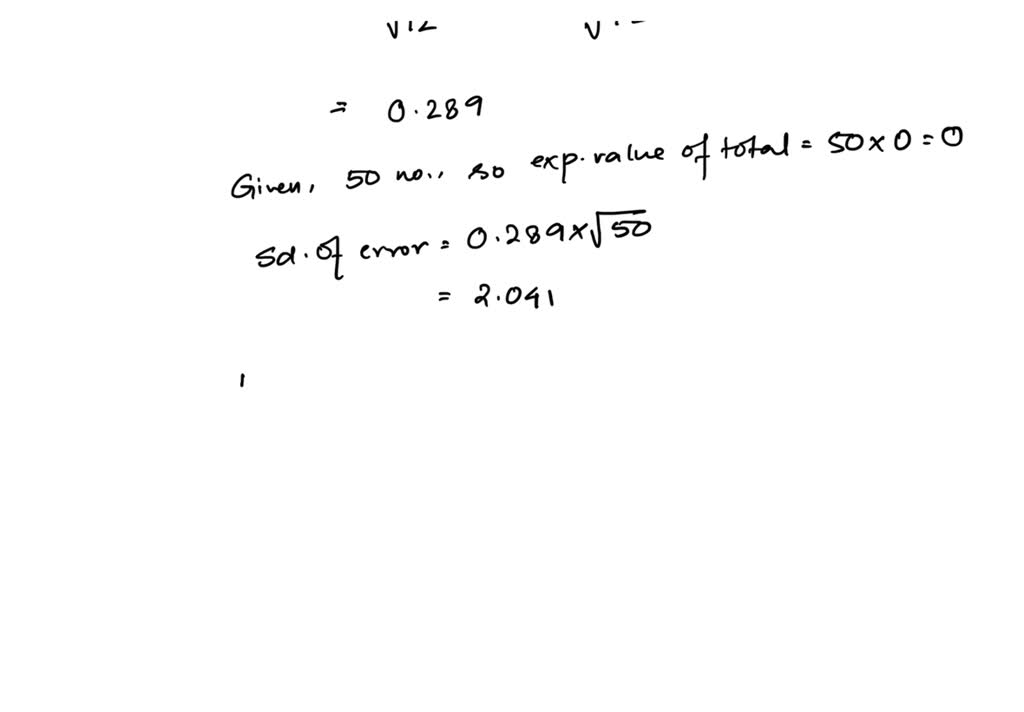 = 0.289
Given, 50 no., so exp. value of total = 50 × 0 = 0
Sd. of error = 0.289 × √50
= 2.041